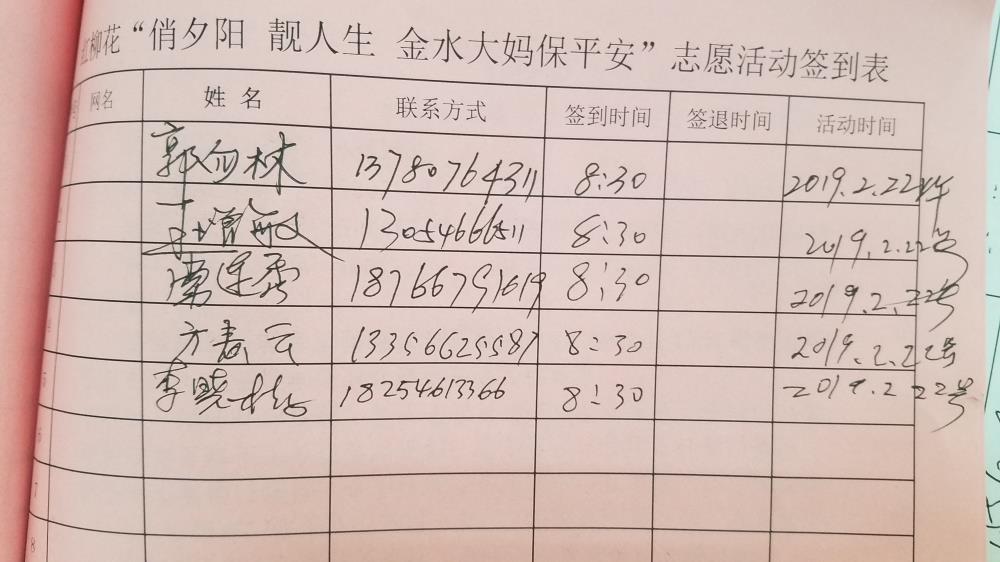 红柳花“俏夕阳 靓人生 金水大妈保平安”志愿活动签到表
号 网名 姓名 联系方式 签到时间 签退时间 活动时间
13780764311 8:30 2019.2.22
13054666511 8:30 2019.2.22号
18766791619 8:30 2019.2.22号
方春云 13356625587 8:30 2019.2.22号
5 李晓 18254613366 8:30 2019.2.22号
6
7
8